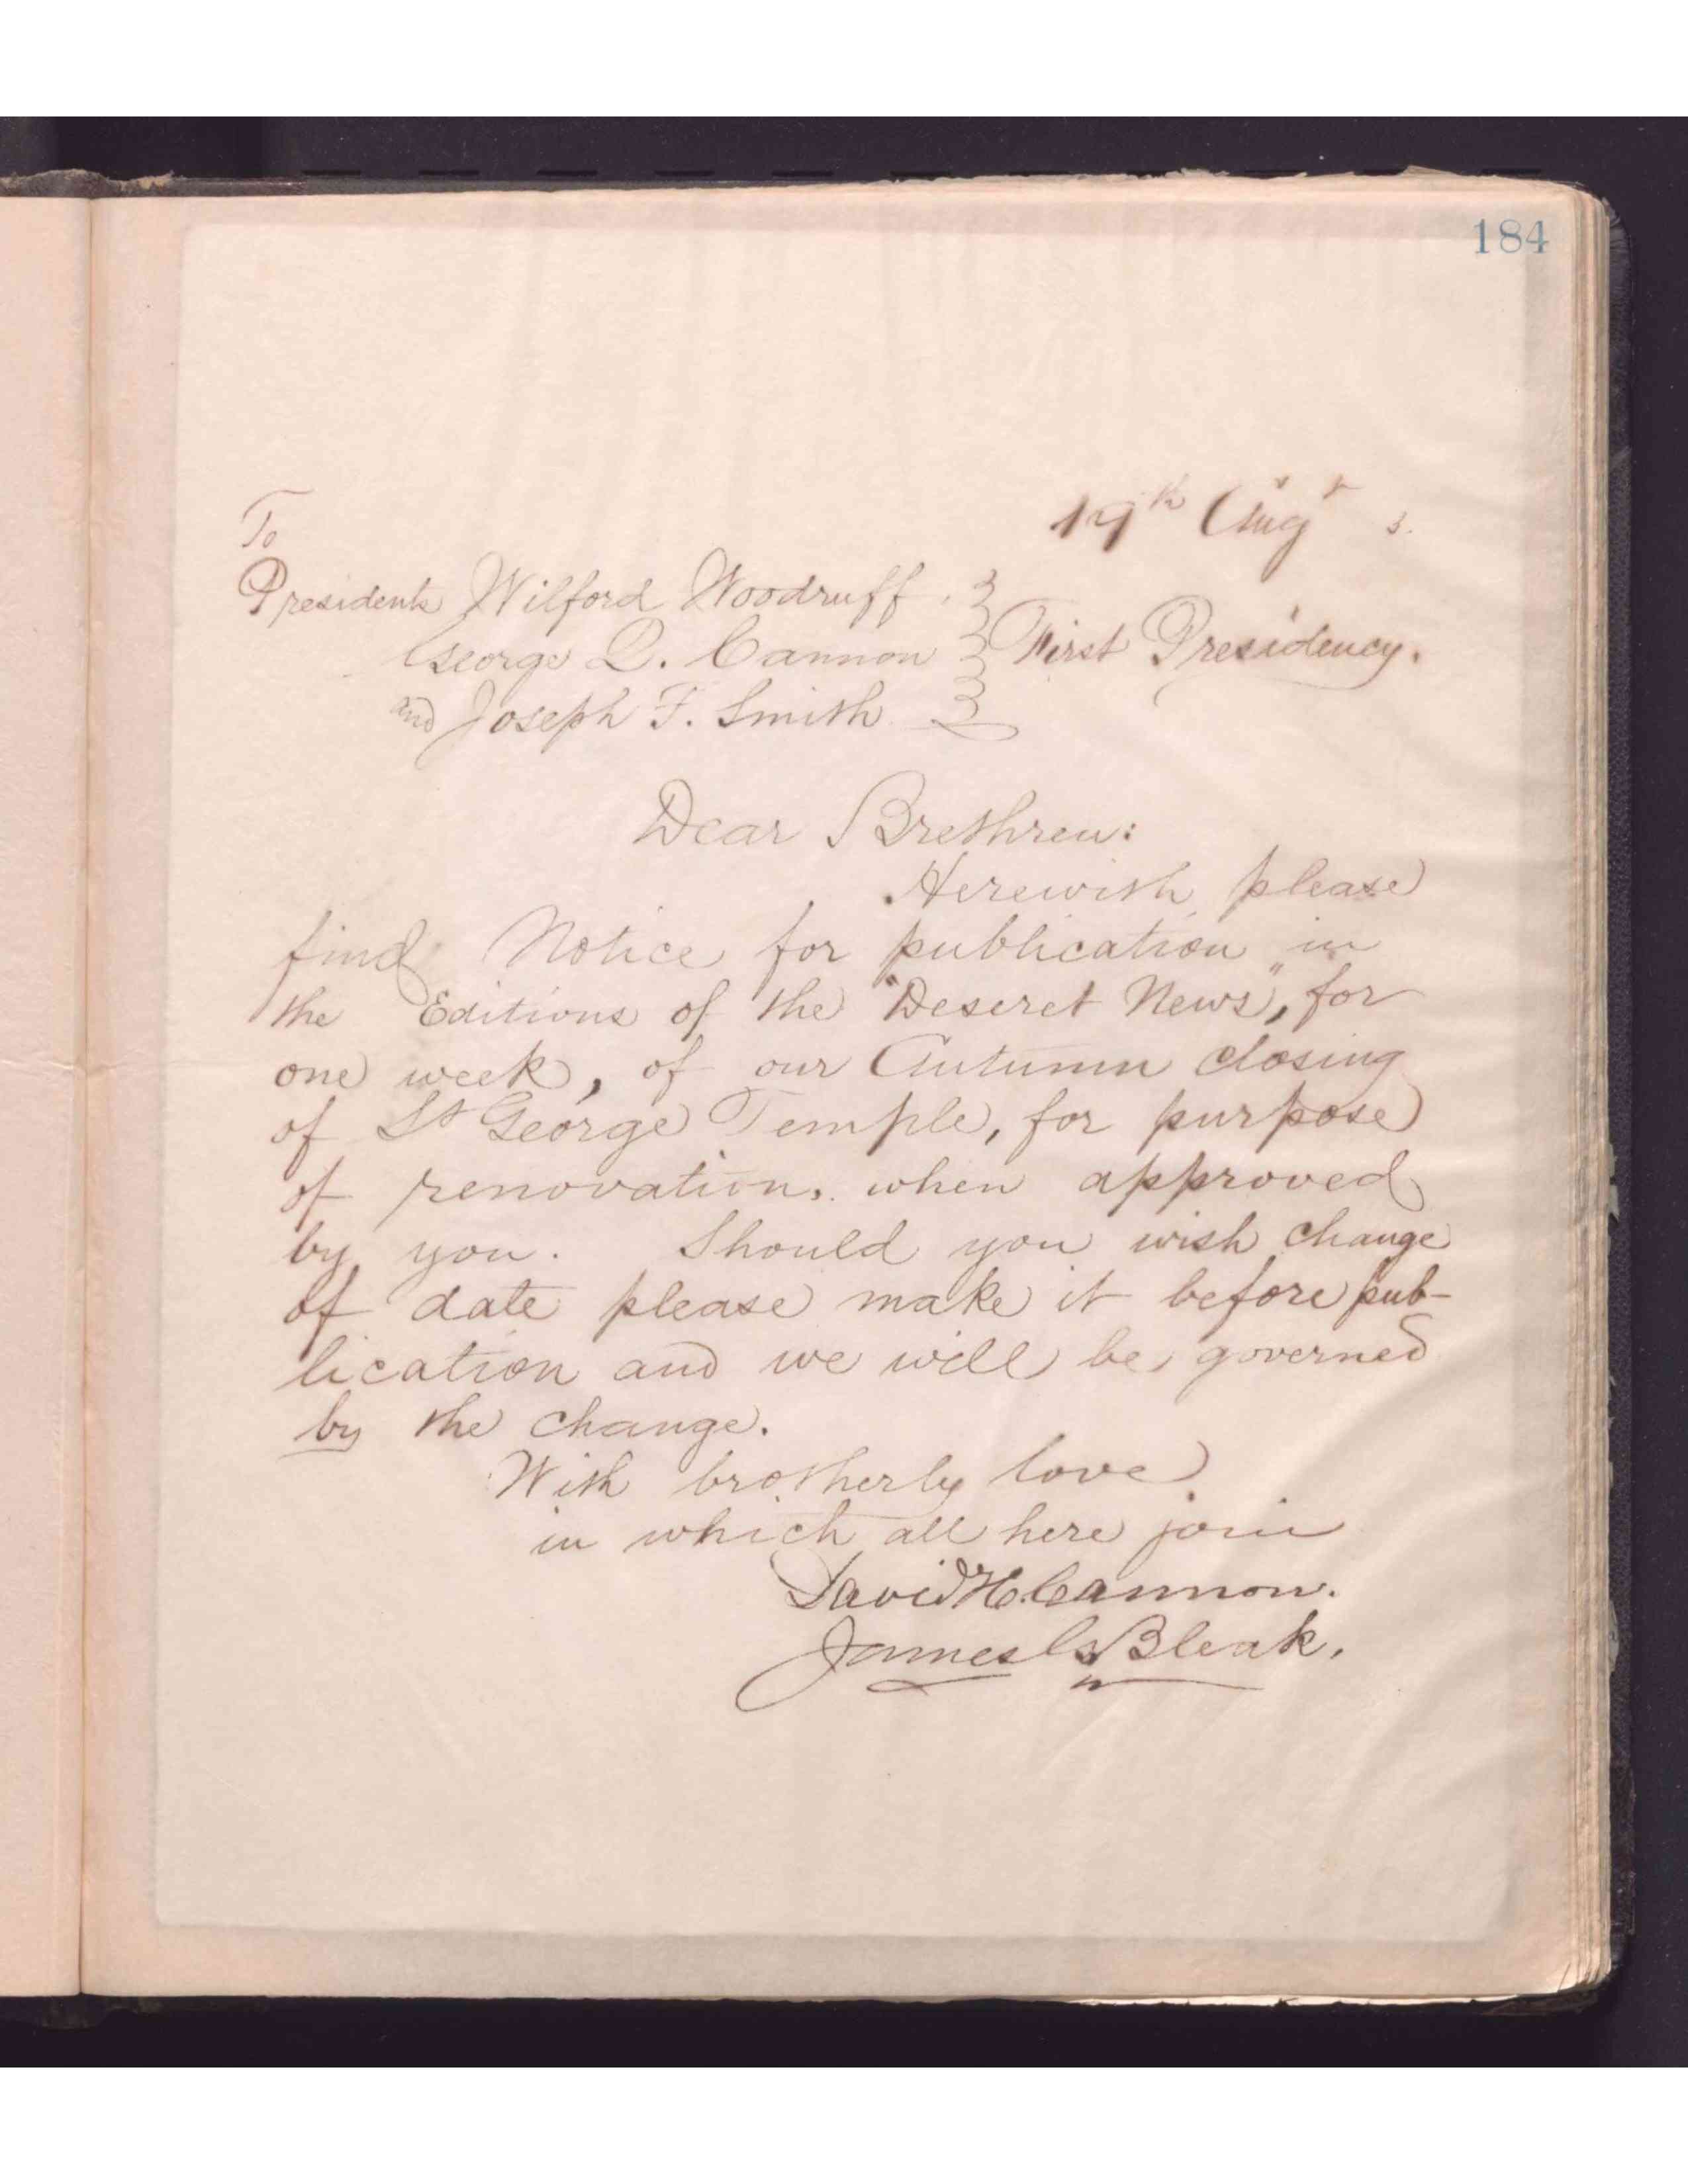 184
19th Augt 3.
To
Presidents Wilford Woodruff.
George Q. Cannon
First Presidency.
and Joseph F. Smith
Dear Brethren:
Herewith please
find Notice for publication in
the Editions of the "Deseret News", for
one week, of our Autumn closing
of St George Temple, for purpose
of renovation, when approved
by you. Should you wish change
of date please make it before pub-
lication and we will be governed
by the change.
With brotherly love
in which all here join
David H. Cannon.
James G Bleak.